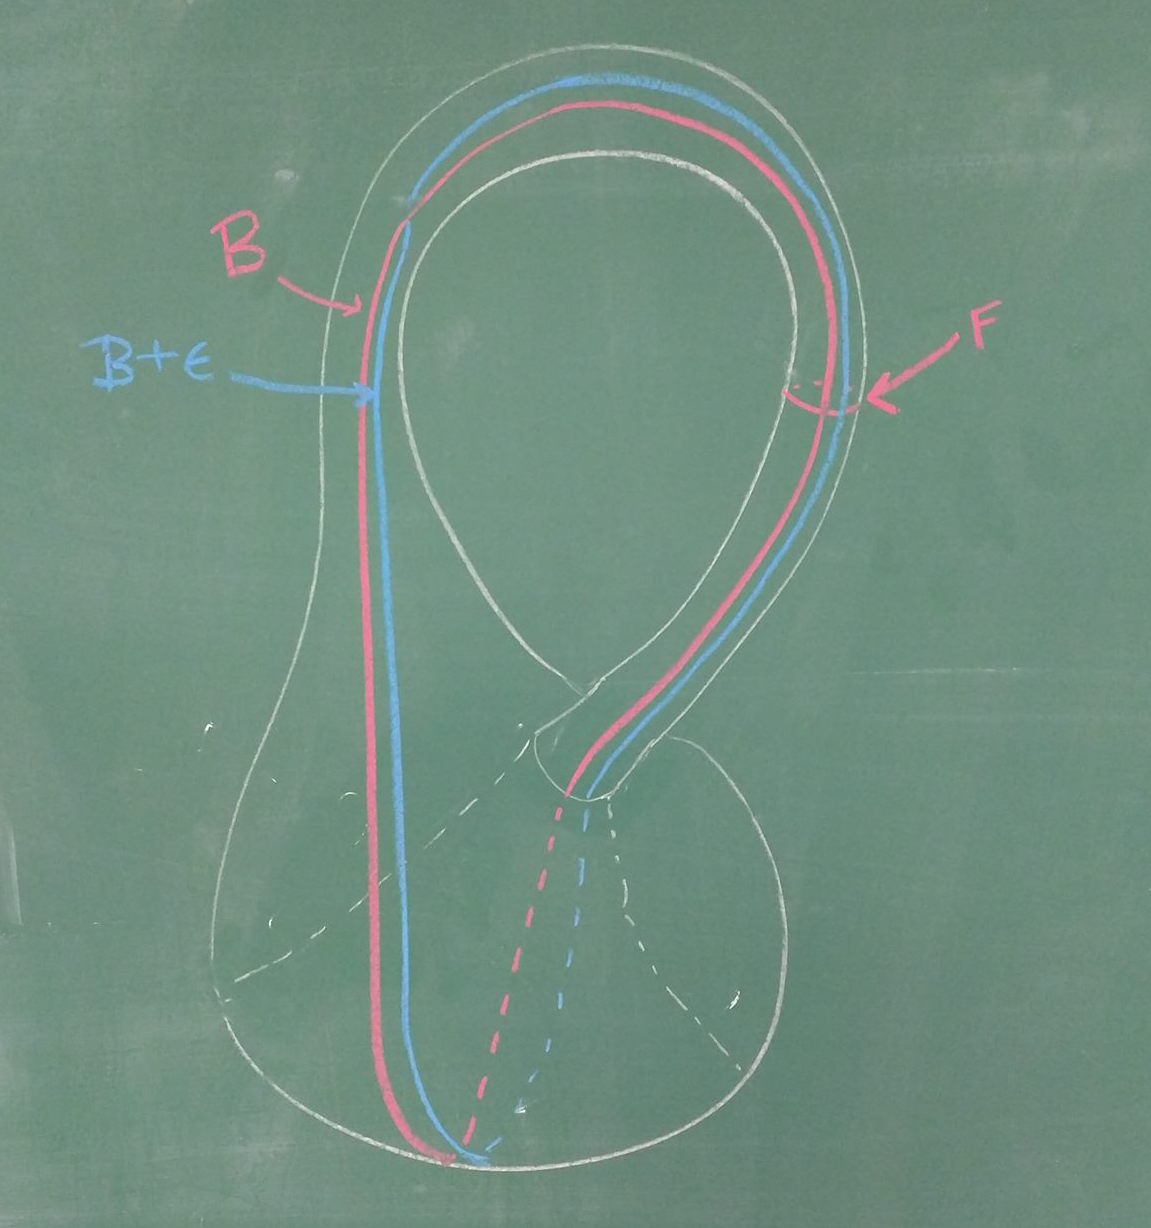 B
B+ϵ
F